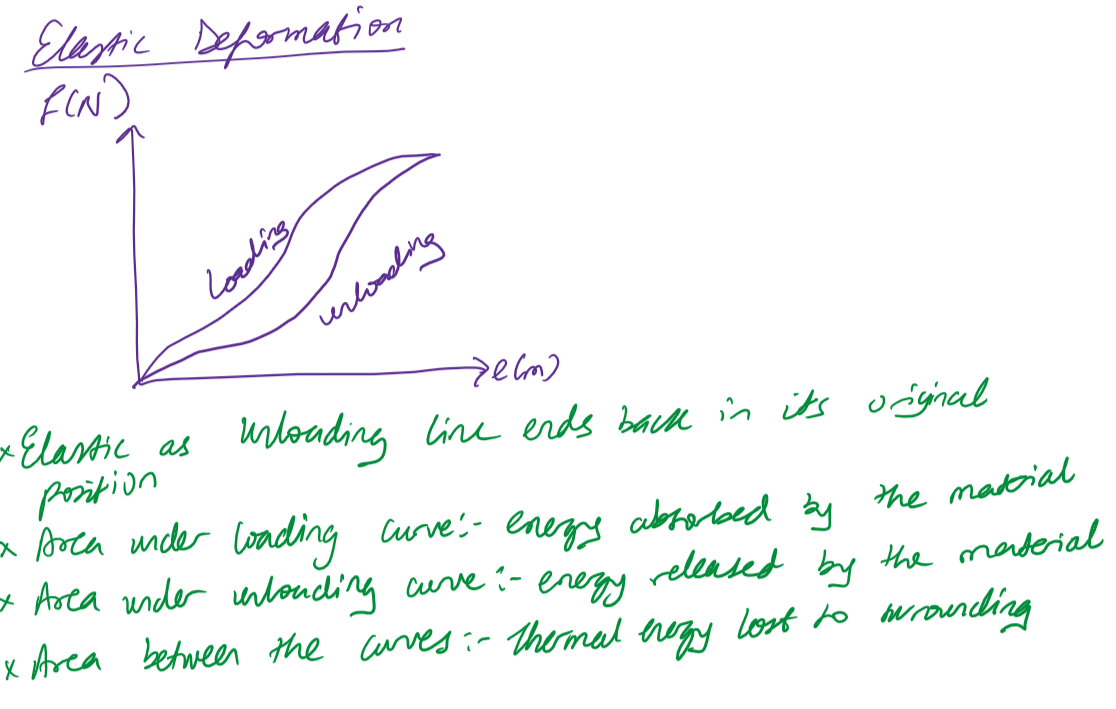 Elastic Deformation
F(N)
Loading
unloading
e(m)
x Elastic as unloading line ends back in its original
position
x Area under loading curve:- energy absorbed by the material
x Area under unloading curve:- energy released by the material
x Area between the curves:- thermal energy lost to surrounding